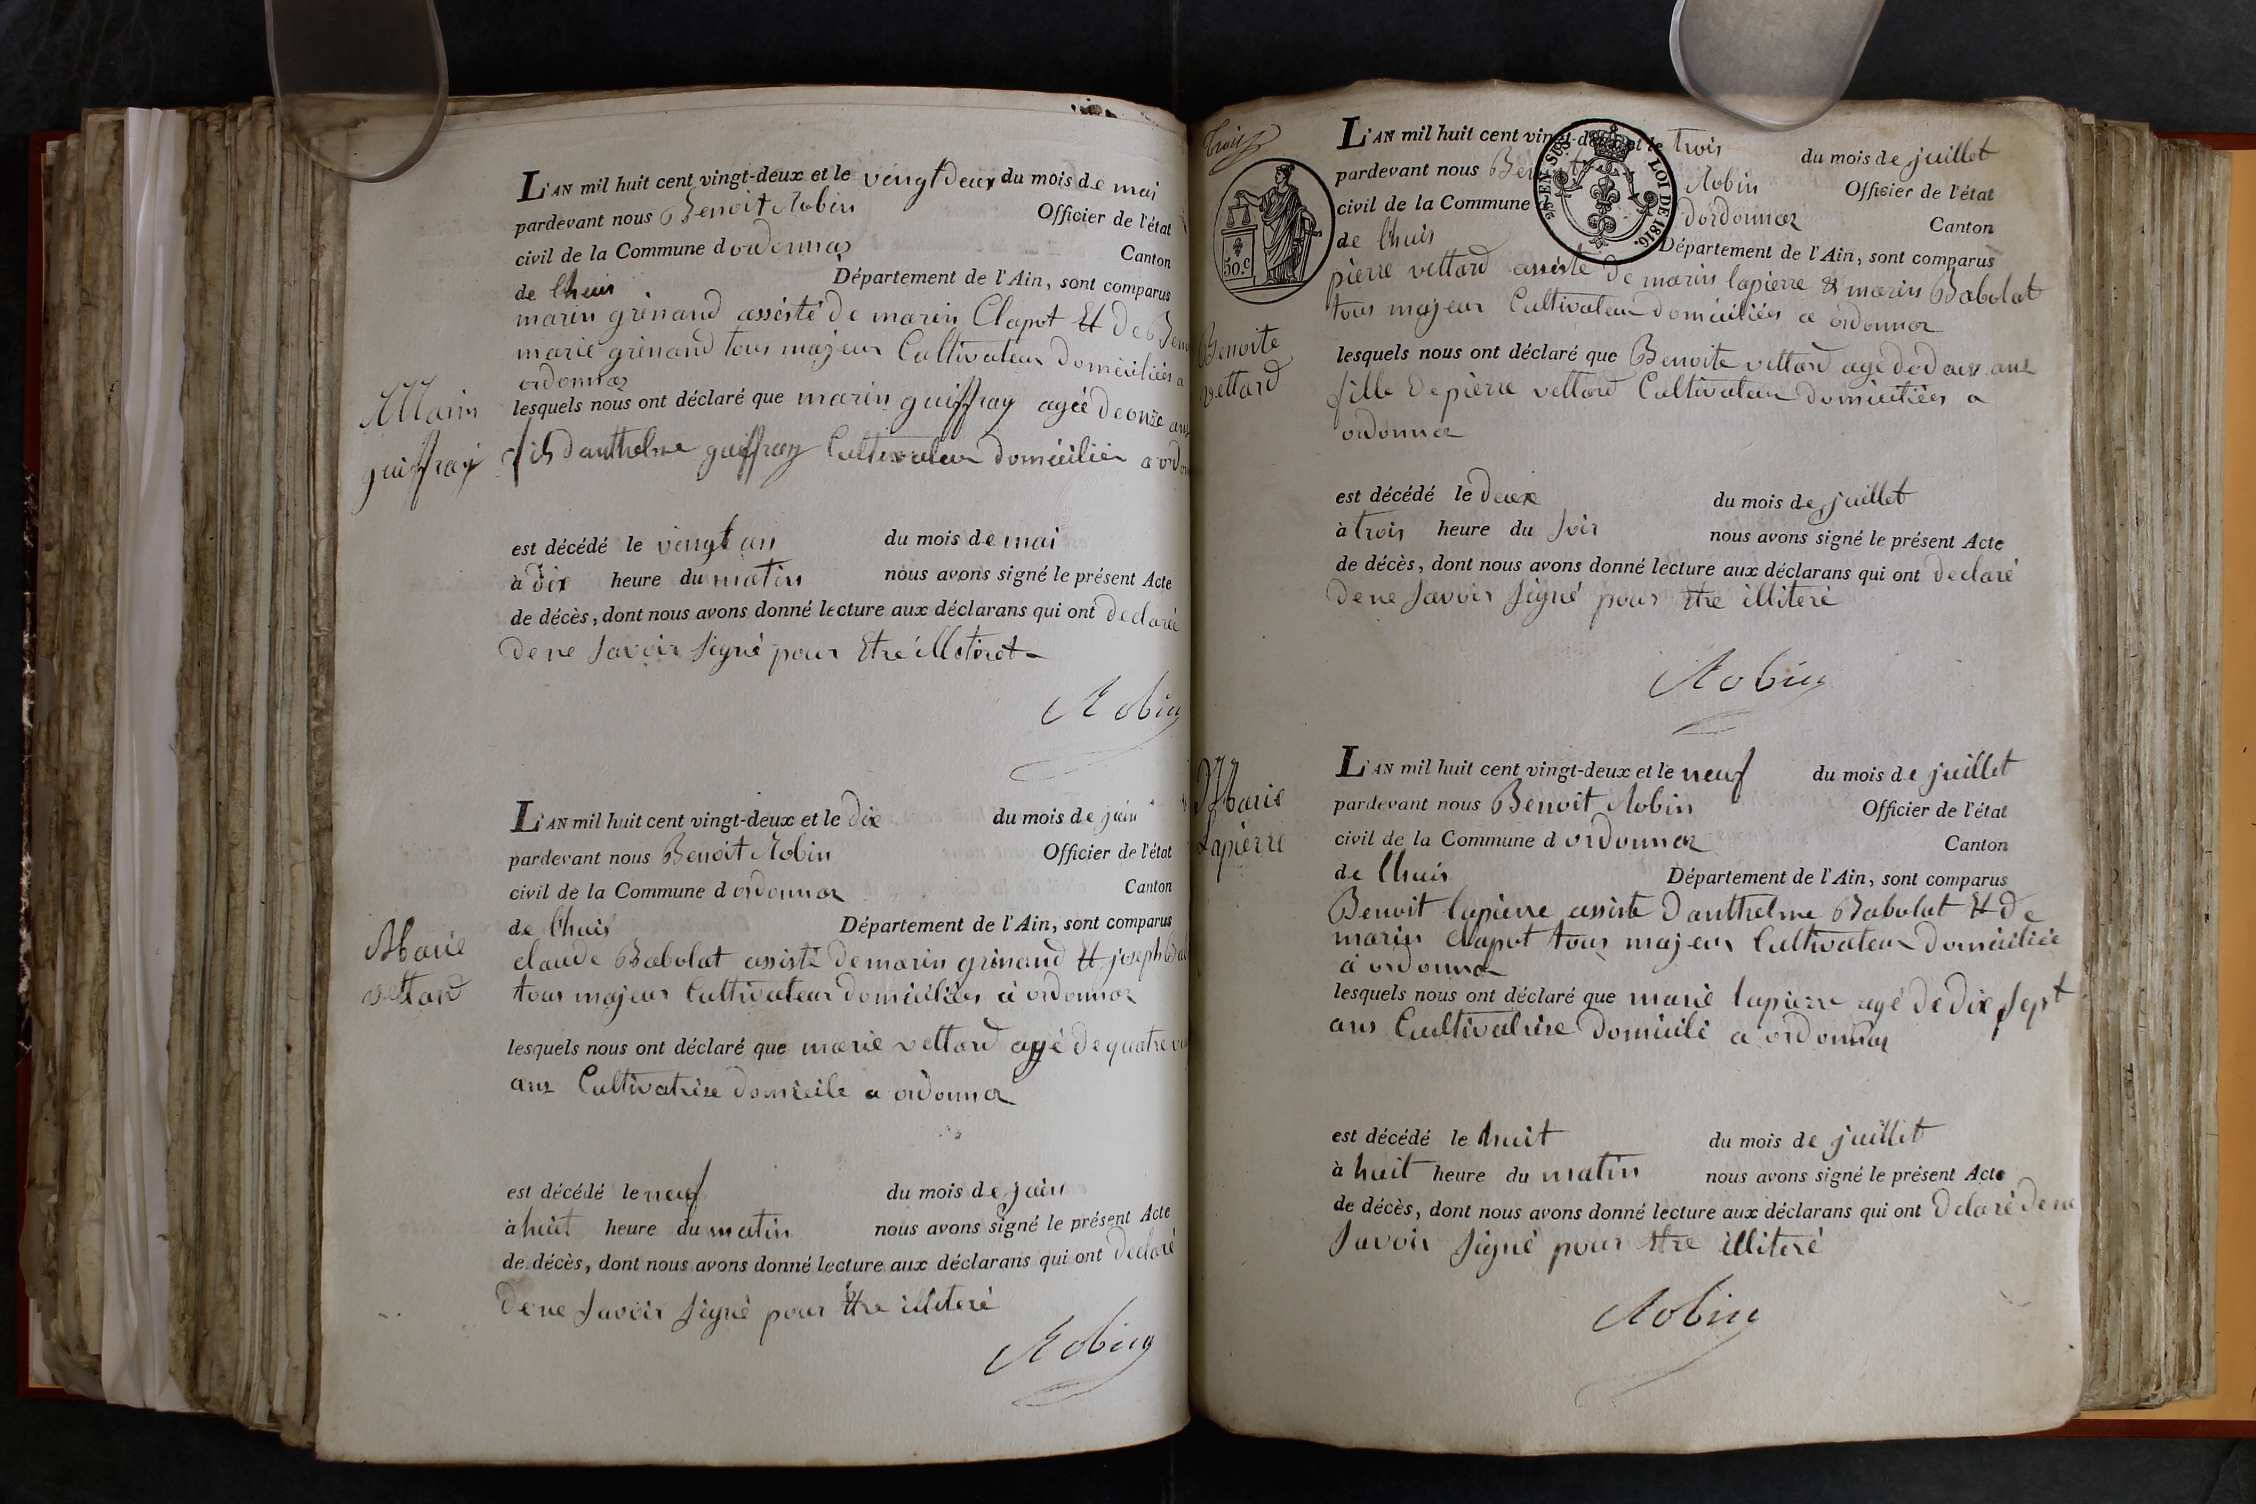 L'AN mil huit cent vingt-deux et le vingt deux du mois de mai
pardevant nous Benoit Robin Officier de l'état
civil de la Commune d ordonnaz Canton
de lhuis Département de l'Ain, sont comparus
marin grinand assisté de marin Clapot Et de
marie grinand tous majeur Cultivateur domiciliés a
ordonnaz
Marin
guiffray
lesquels nous ont déclaré que marin guiffray agée de onze ans
fils danthelme guiffray Cultivateur domicilier a
est décédé le vingt un du mois de mai
à dix heure du matin nous avons signé le présent Acte
de décès, dont nous avons donné lecture aux déclarans qui ont declaré
de ne savoir signé pour Etre illiteret
Robin
L'AN mil huit cent vingt-deux et le dix du mois de juin
pardevant nous Benoit Robin Officier de l'état
civil de la Commune d ordonnaz Canton
de lhuis Département de l'Ain, sont comparus
Marie
vettard
claude Babolat assisté de marin grinand Et joseph
tous majeur Cultivateur domiciliées à ordonnaz
lesquels nous ont déclaré que marie vettard agé de quatre
ans Cultivatrise domicile a ordonnaz
est décédé le neuf du mois de juin
à huit heure du matin nous avons signé le présent Acte
de décès, dont nous avons donné lecture aux déclarans qui ont declaré
de ne savoir signé pour Etre illiteré
Robin
Trois
L'AN mil huit cent vingt-deux et le trois du mois de juillet
pardevant nous Benoit Robin Officier de l'état
civil de la Commune dordonnaz Canton
de lhuis Département de l'Ain, sont comparus
50.c
EN SUS LOI DE 1816.
pierre vettard assisté de marin lapierre & marin Babolat
tous majeur Cultivateur domiciliées a ordonnaz
Benoite
vettard
lesquels nous ont déclaré que Benoite vettard agé de deux ans
fille de pierre vettard Cultivateur domiciliées a
ordonnaz
est décédé le deux du mois de juillet
à trois heure du soir nous avons signé le présent Acte
de décès, dont nous avons donné lecture aux déclarans qui ont declaré
de ne savoir signé pour Etre illiteré
Robin
Marie
Lapierre
L'AN mil huit cent vingt-deux et le neuf du mois de juillet
pardevant nous Benoit Robin Officier de l'état
civil de la Commune d ordonnaz Canton
de lhuis Département de l'Ain, sont comparus
Benoit lapierre assisté danthelme Babolat Et de
marin clapot tous majeur Cultivateur domiciliée
à ordonnaz
lesquels nous ont déclaré que marie lapierre agé de dix sept
ans Cultivatrise domicilé a ordonnaz
est décédé le huit du mois de juillet
à huit heure du matin nous avons signé le présent Acte
de décès, dont nous avons donné lecture aux déclarans qui ont declaré de ne
savoir signé pour Etre illiteré
Robin